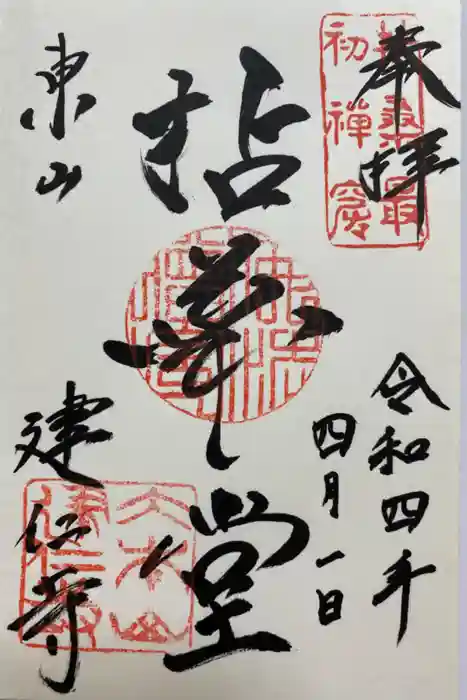 奉拝
扶桑最
初禅窟
令和四年
四月一日
拈華堂
東山
建仁寺
大本山
建仁寺